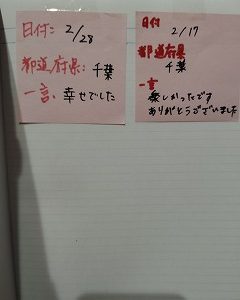 日付: 2/28
都道府県: 千葉
一言、幸せでした
日付
2/17
都道府県
千葉
一言
楽しかったです
ありがとうございました